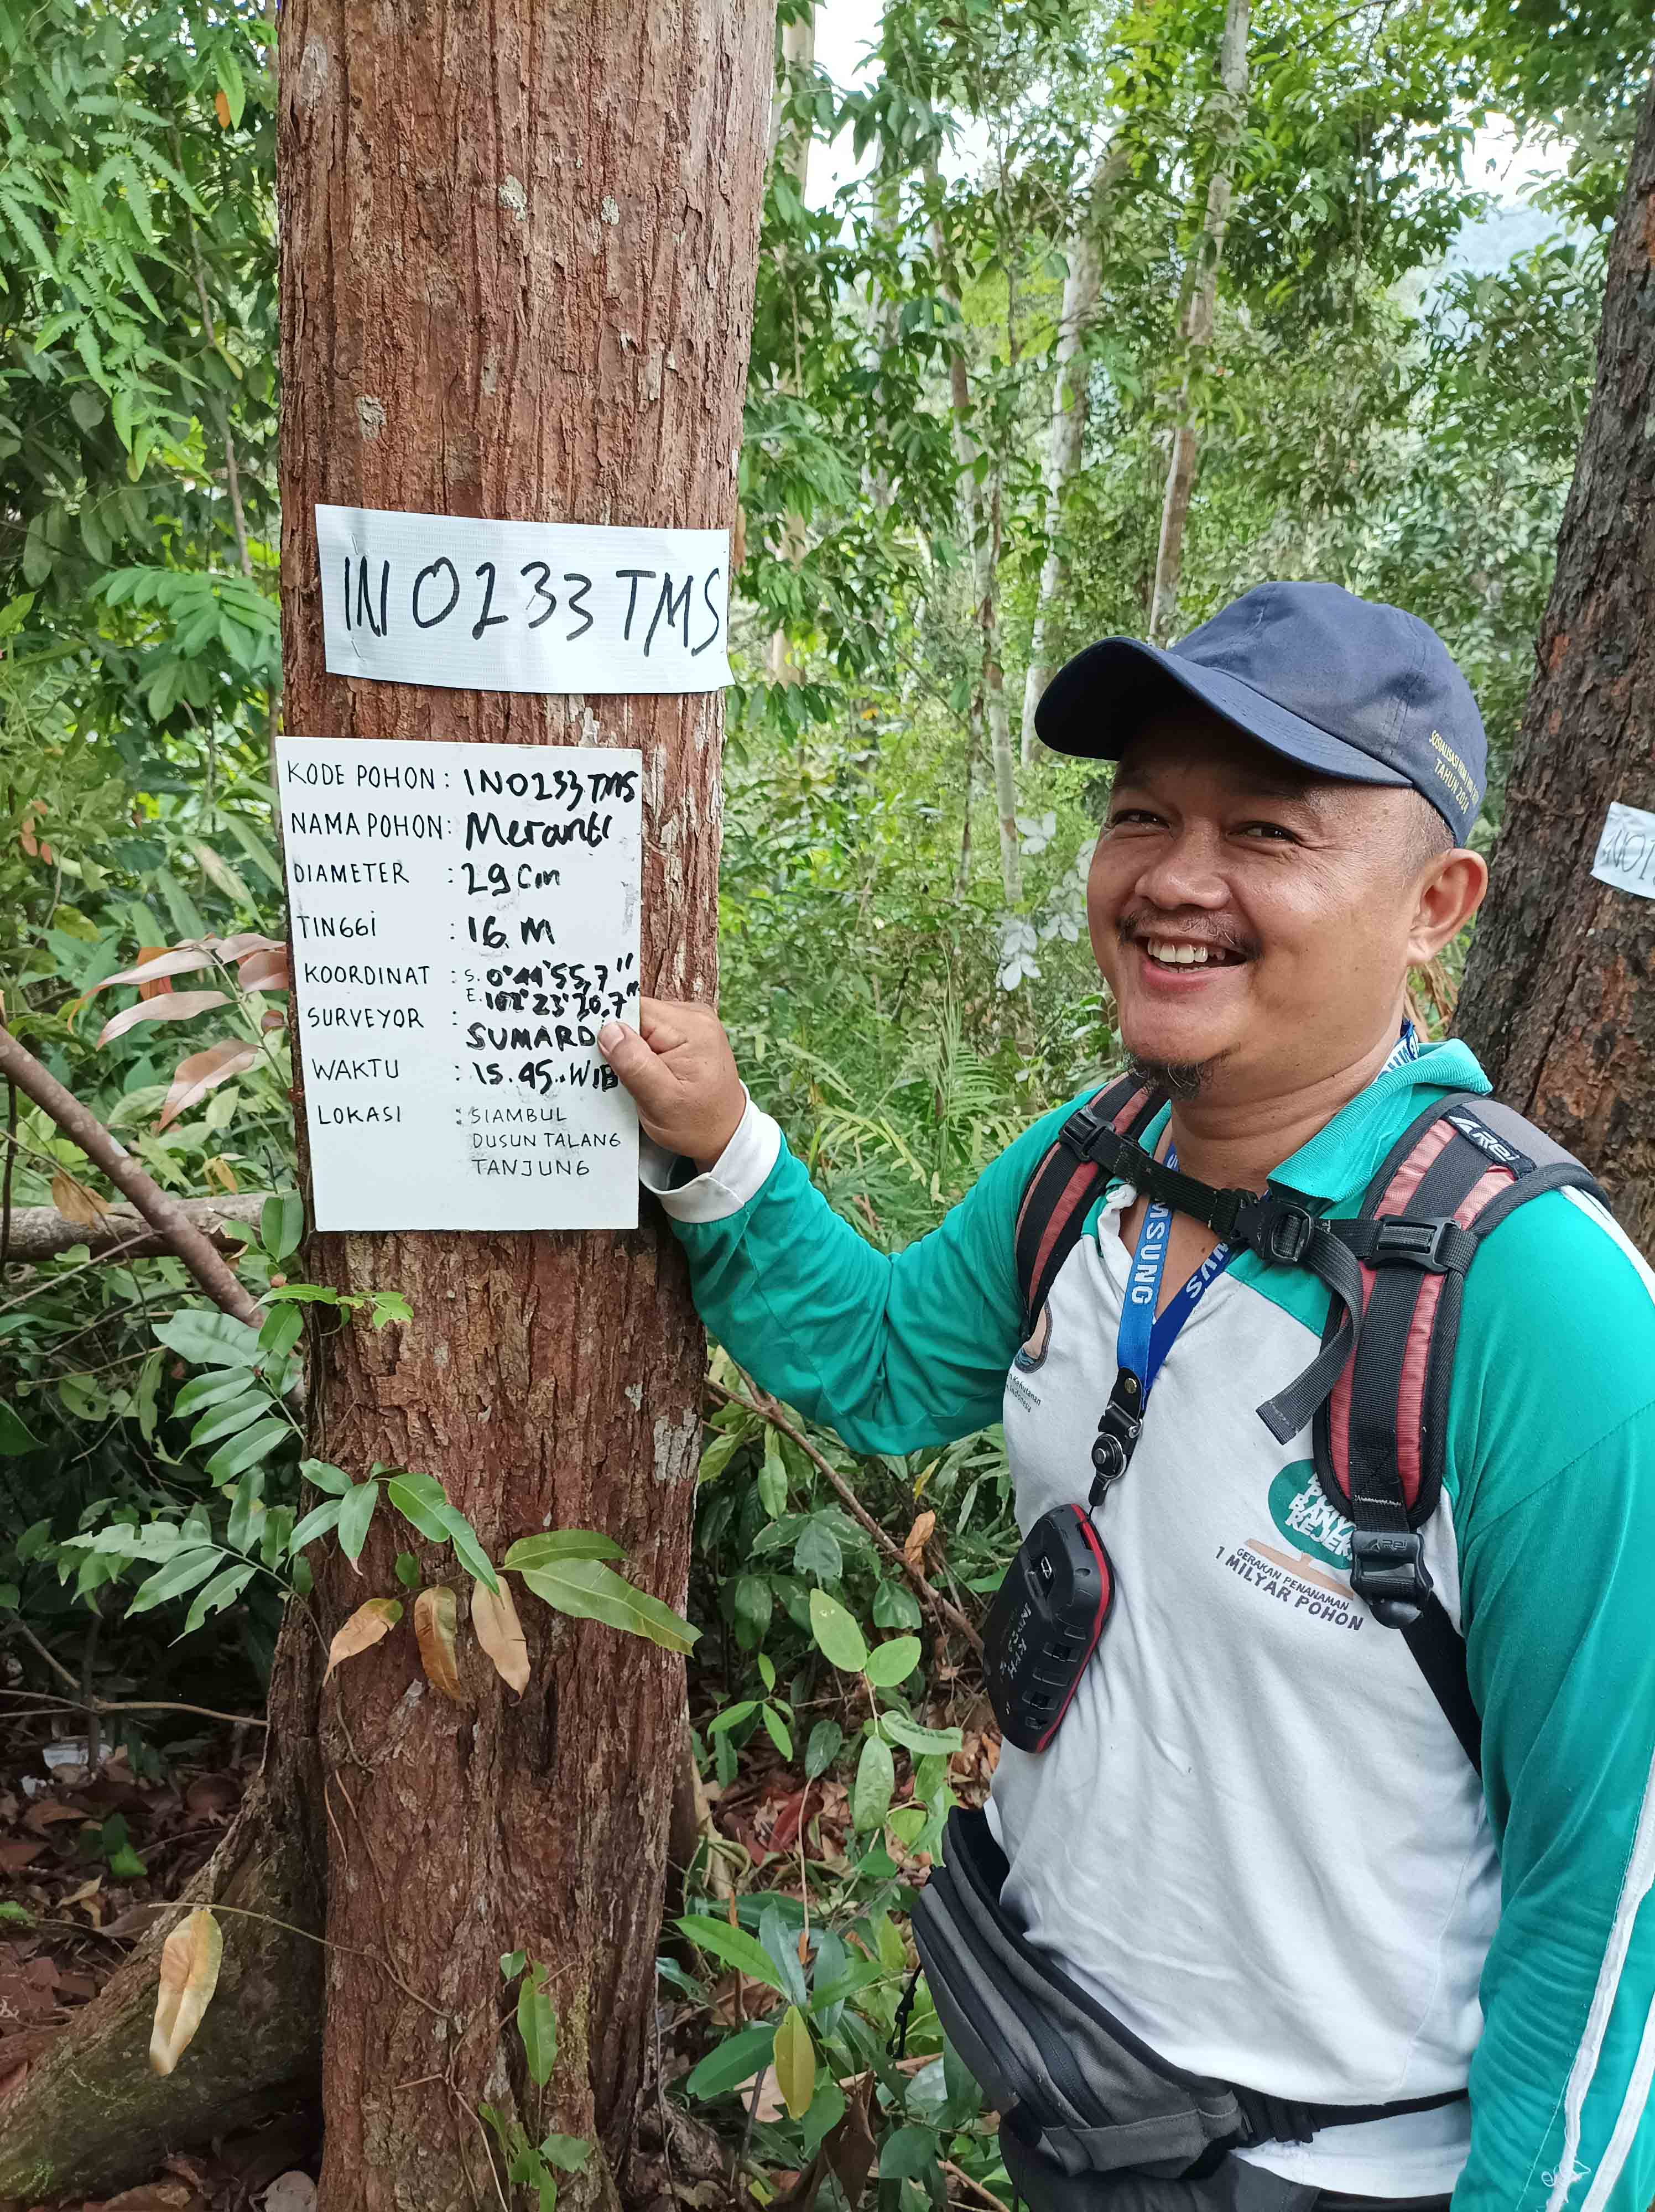 INO233TMS
KODE POHON : INO233TMS
NAMA POHON: Meranti
DIAMETER : 29 Cm
TINGGI : 16 M
KOORDINAT : S. 0°44'55,7"
E. 102°23'20,7"
SURVEYOR :
SUMARDI
WAKTU : 15.45.WIB
LOKASI : SIAMBUL
DUSUN TALANG
TANJUNG
TAHUN 2014
Arei
SAMSUNG
GERAKAN PENANAMAN
1 MILYAR POHON
Arei